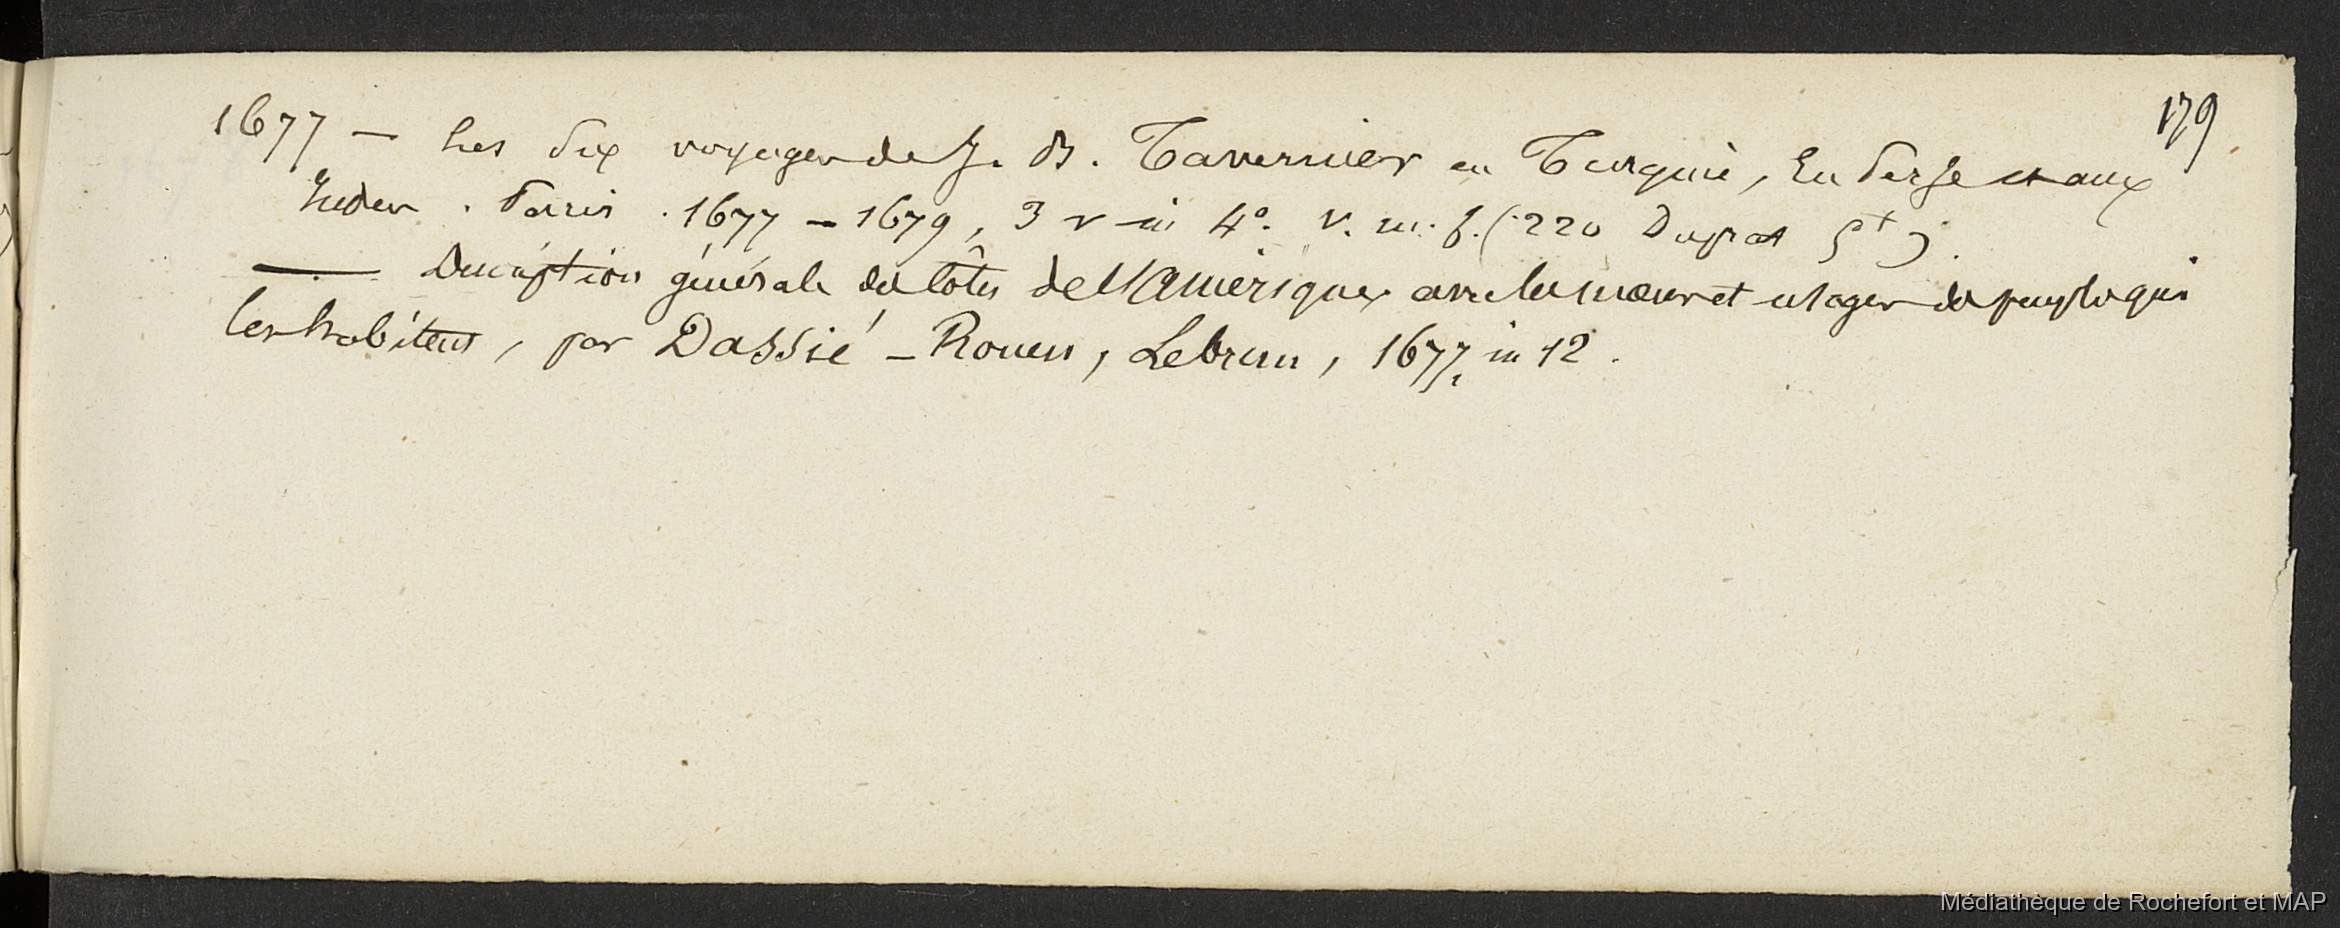 179
1677 — Les Six voyages de J. B. Tavernier en Turquie, En Perse et aux
Indes . Paris . 1677 – 1679, 3 v in 4°. v. m. f. (220 Duprat
— Description générale des Côtes de l'Amérique, avec les mœurs et usages des peuples qui
les habitent, par Dassié – Rouen, Lebrun, 1677, in 12.
Médiathèque de Rochefort et MAP